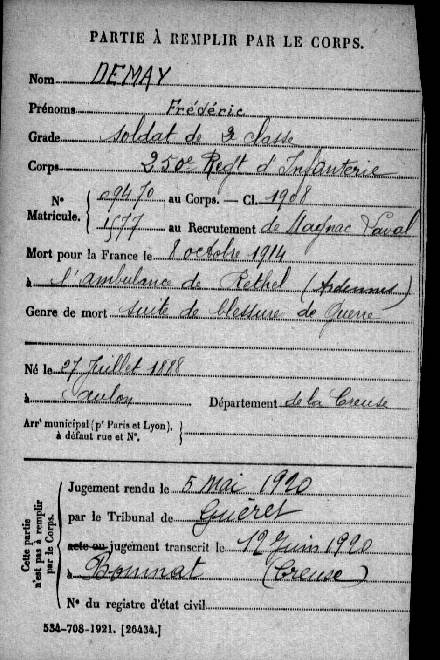 PARTIE À REMPLIR PAR LE CORPS.
Nom DEMAY
Prénoms Frédéric
Grade soldat de 2 classe
Corps 250e Regt d Infanterie
N° Matricule. { 09470 au Corps. — Cl. 1908
1577 au Recrutement de Magnac Laval
Mort pour la France le 8 octobre 1914
à l'ambulance de Rethel (Ardennes)
Genre de mort suite de blessure de Guerre
Né le 27 Juillet 1888
à Saulon Département de la Creuse
Arrt municipal (pr Paris et Lyon),
à défaut rue et N°.
Cette partie n'est pas à remplir par le Corps.
Jugement rendu le 5 mai 1920
par le Tribunal de Guéret
acte ou jugement transcrit le 12 Juin 1920
à Bonnat (Creuse)
N° du registre d'état civil
534-708-1921. [26434.]